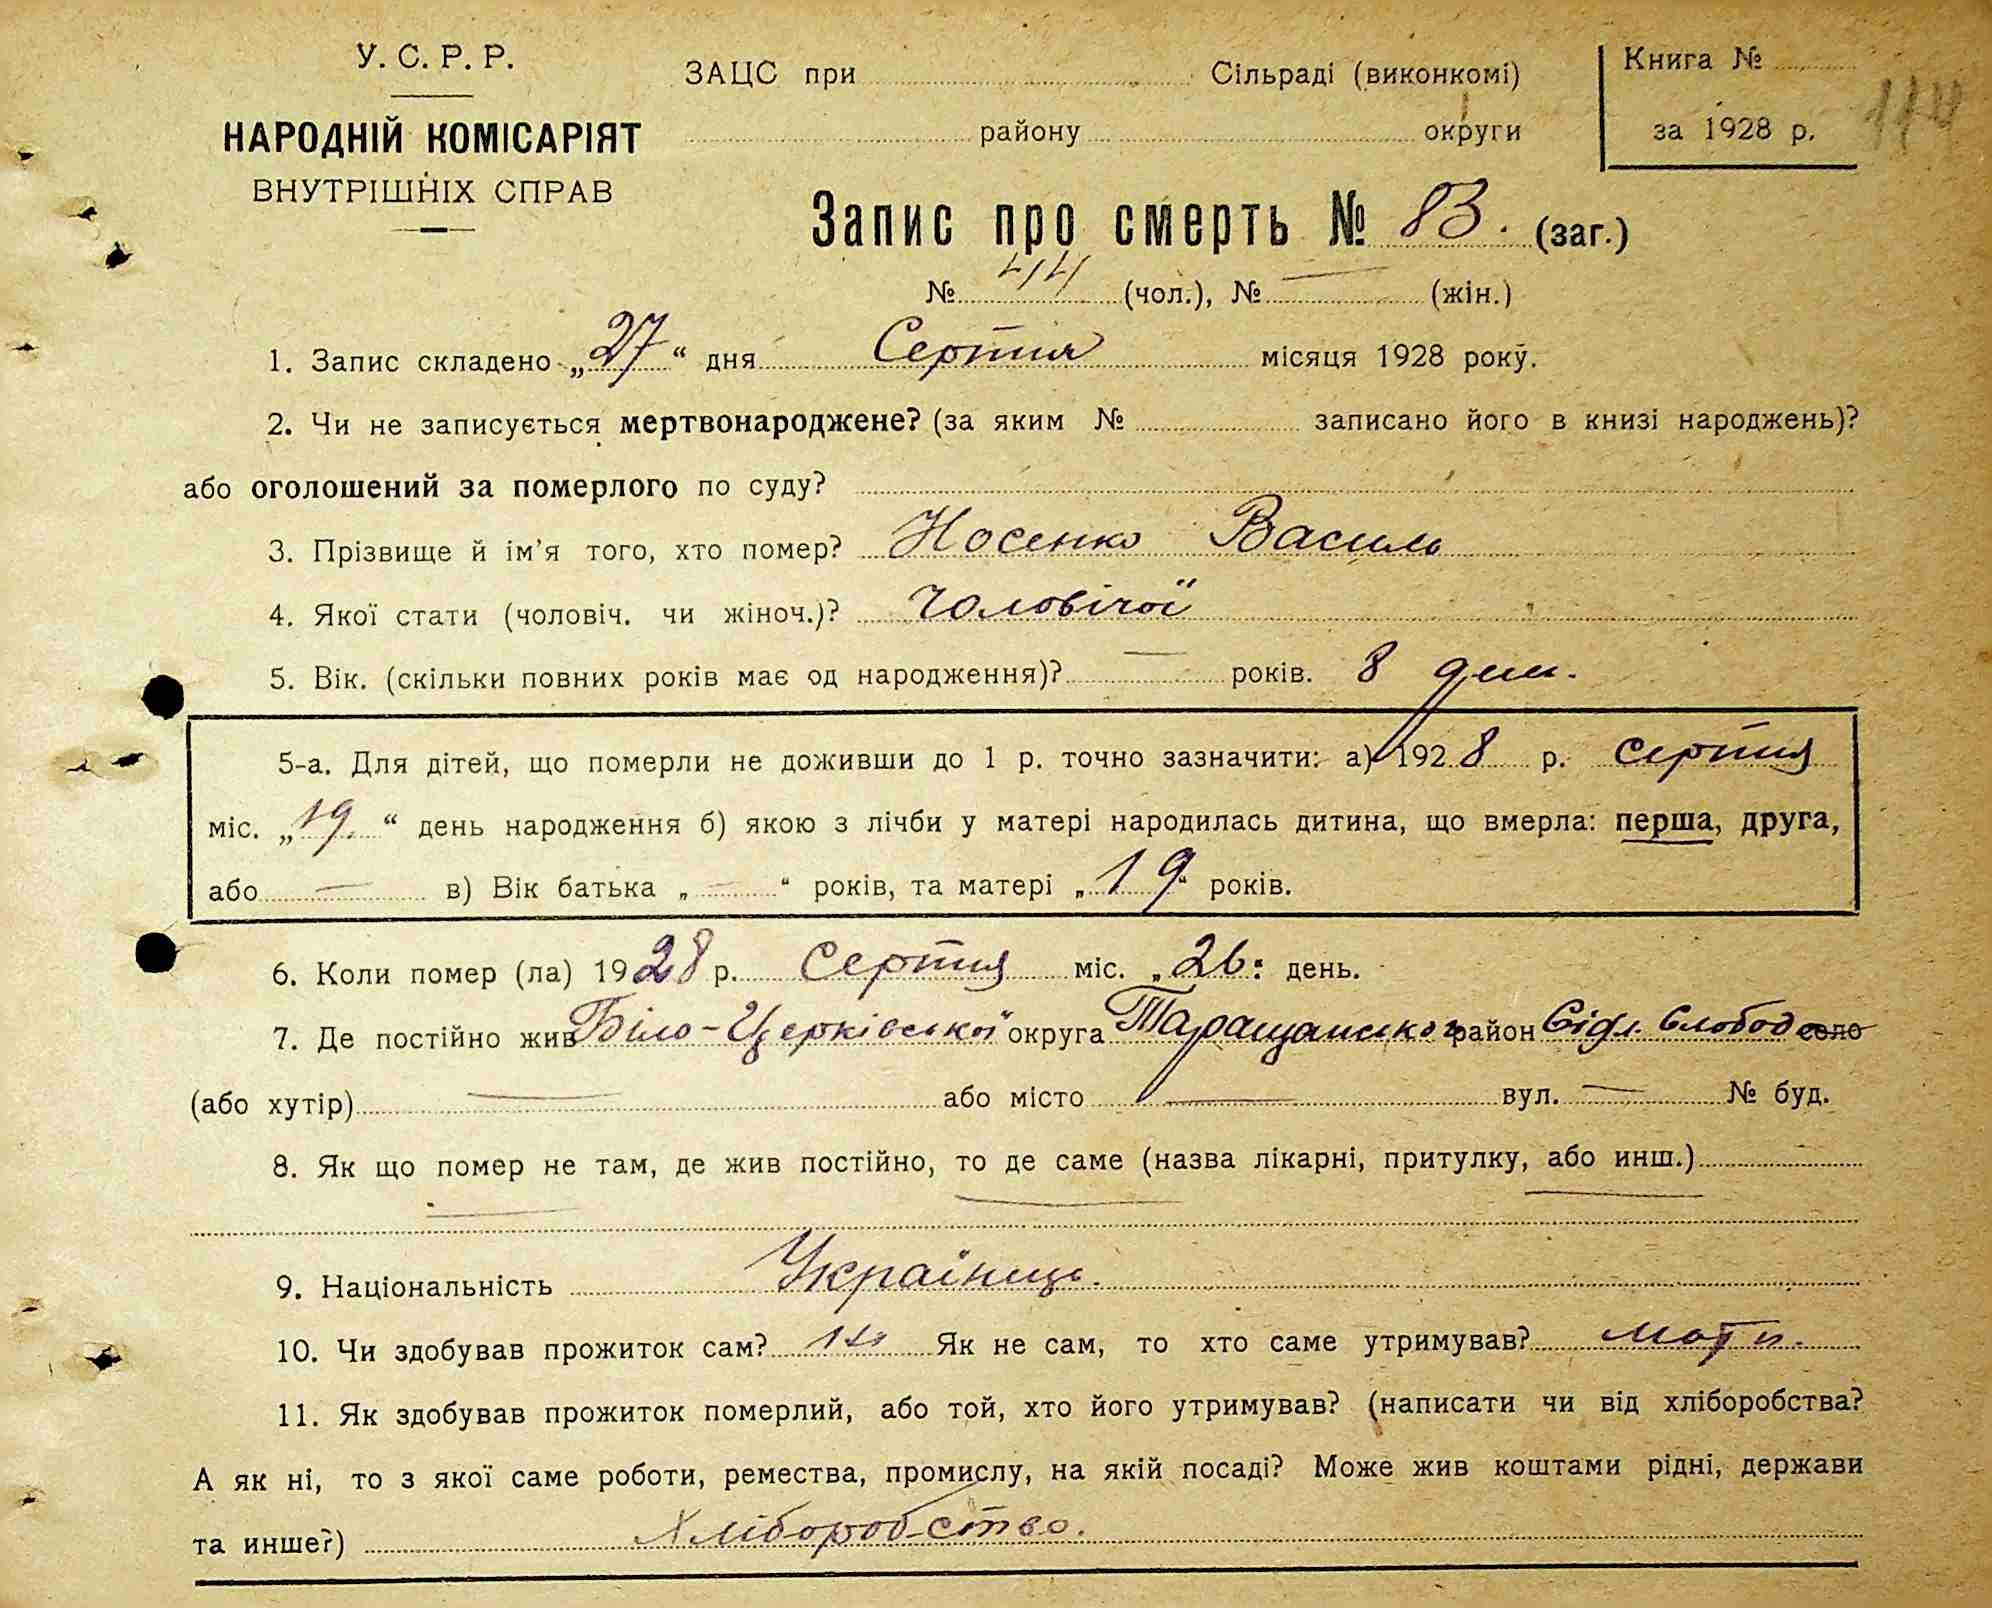 У. С. Р. Р.
НАРОДНІЙ КОМІСАРІЯТ
ВНУТРІШНІХ СПРАВ
ЗАЦС при Сільраді (виконкомі)
району округи
Книга №
за 1928 р.
Запис про смерть № 83. (заг.)
№ 44 (чол.), № — (жін.)
1. Запис складено „27“ дня Серпня місяця 1928 року.
2. Чи не записується мертвонароджене? (за яким № записано його в книзі народжень)?
або оголошений за померлого по суду?
3. Прізвище й ім'я того, хто помер? Носенко Василь
4. Якої стати (чоловіч. чи жіноч.)? Чоловічої
5. Вік. (скільки повних років має од народження)? — років. 8 дни.
5-а. Для дітей, що померли не доживши до 1 р. точно зазначити: а) 1928 р. серпня
міс. „19.“ день народження б) якою з лічби у матері народилась дитина, що вмерла: перша, друга,
або — в) Вік батька „—“ років, та матері „19“ років.
6. Коли помер (ла) 1928 р. серпня міс. „26.“ день.
7. Де постійно жив Біло-Церківської округа Таращанського район Сідл. Слобод село
(або хутір) — або місто — вул. — № буд.
8. Як що помер не там, де жив постійно, то де саме (назва лікарні, притулку, або инш.)
9. Національність Українець.
10. Чи здобував прожиток сам? ні Як не сам, то хто саме утримував? мати.
11. Як здобував прожиток померлий, або той, хто його утримував? (написати чи від хліборобства?
А як ні, то з якої саме роботи, ремества, промислу, на якій посаді? Може жив коштами рідні, держави
та инше?) Хліборобство.